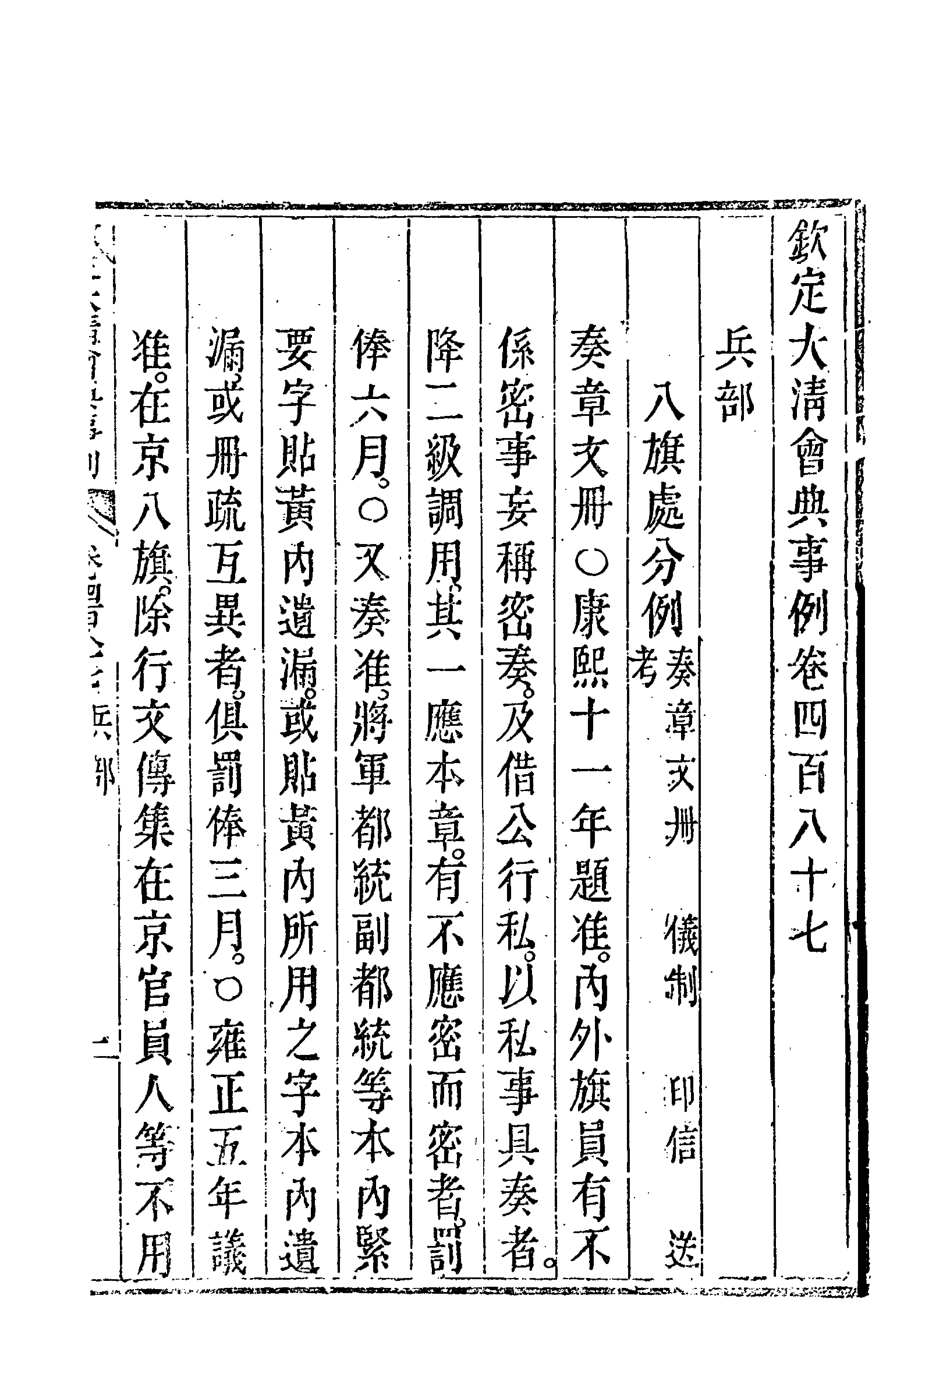 欽定大清會典事例卷四百八十七
兵部
八旗處分例 奏章文冊 儀制 印信 送
考
奏章文冊○康熙十一年題准。內外旗員有不
係密事妄稱密奏。及借公行私。以私事具奏者。
降二級調用。其一應本章。有不應密而密者。罰
俸六月。○又奏准。將軍都統副都統等本內緊
要字貼黃內遺漏。或貼黃內所用之字本內遺
漏。或冊疏互異者。俱罰俸三月。○雍正五年議
准。在京八旗。除行文傳集在京官員人等不用
大清會典事例 卷四百八十七 兵部 一